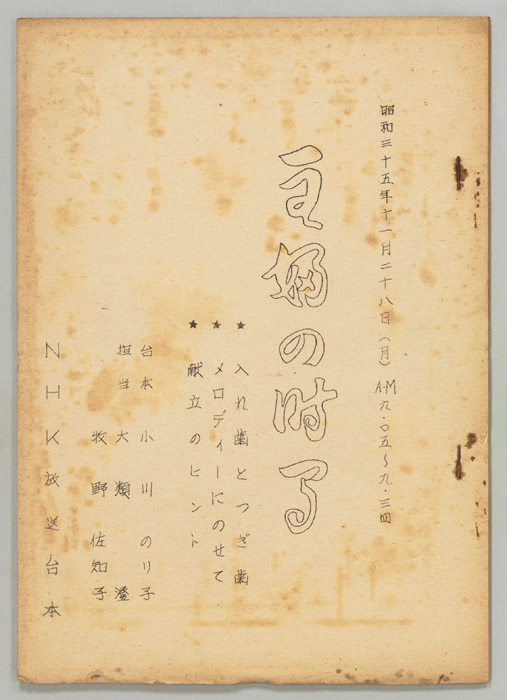 昭和三十五年十一月二十八日（月） A・M 九・〇五～九・三四
主婦の時間
★ 入れ歯とつぎ歯
★ メロディーにのせて
★ 献立のヒント
台本 小川のり子
担当 大類澄
牧野佐知子
NHK放送台本